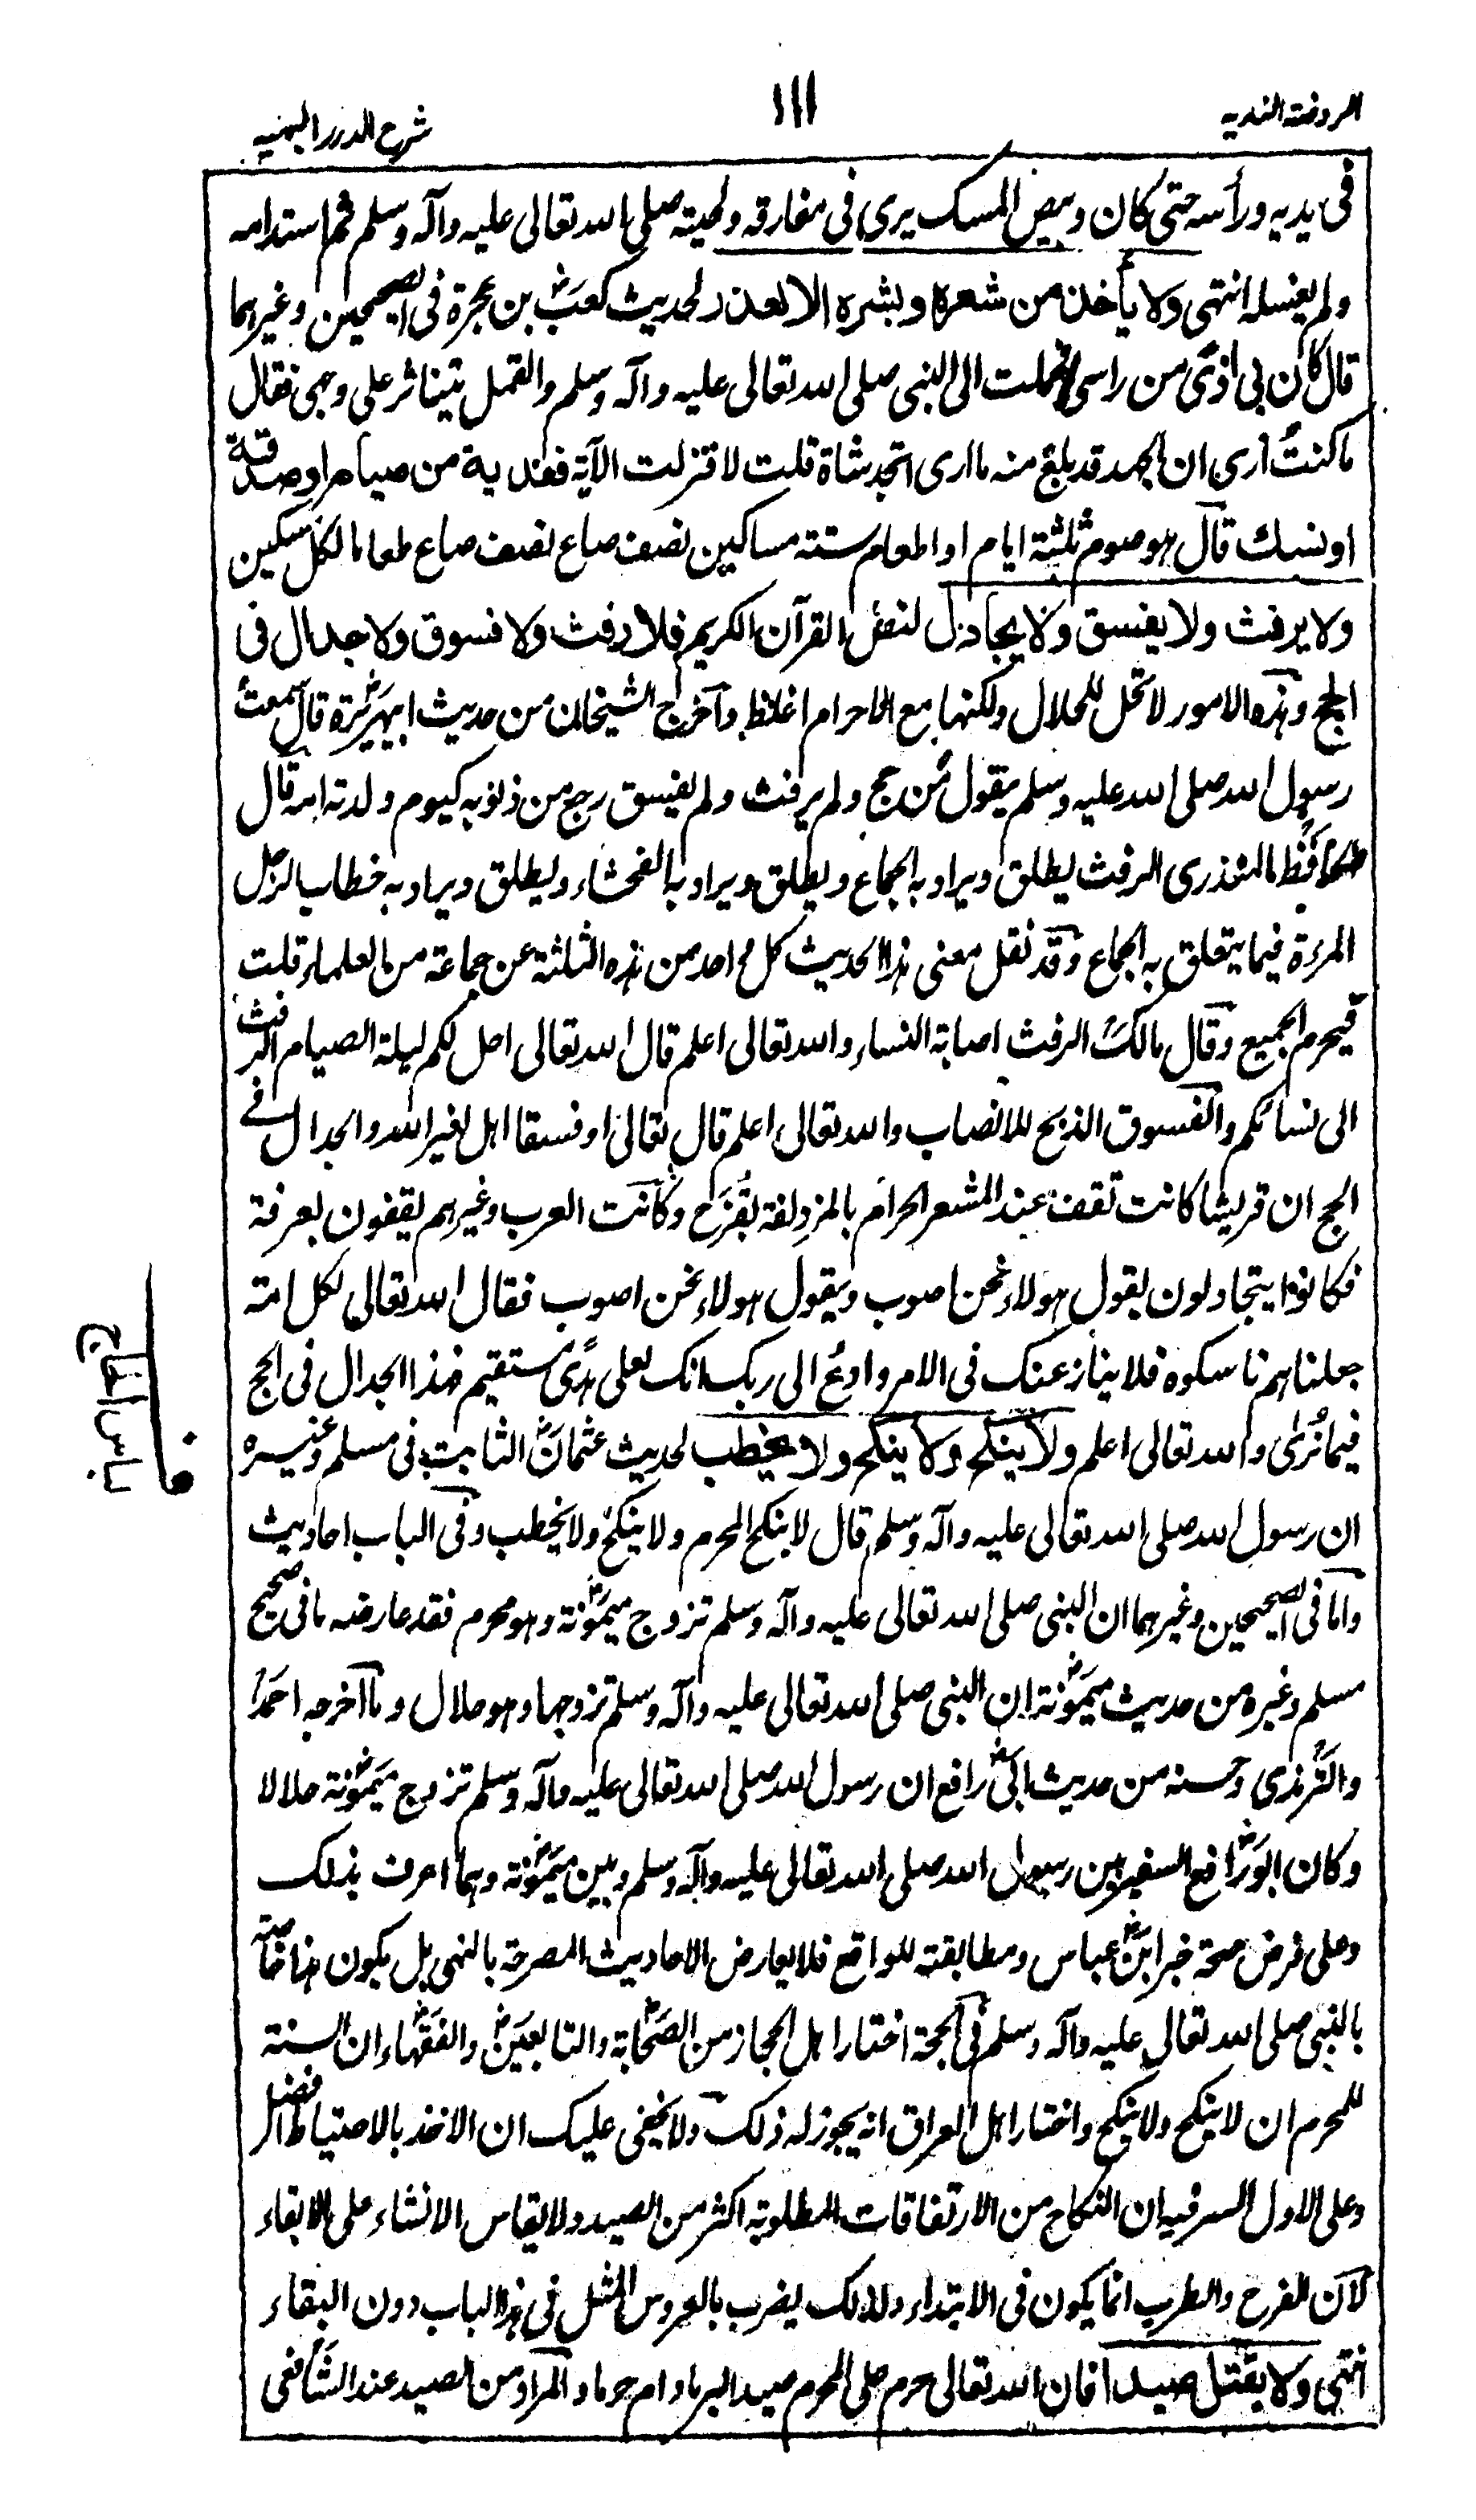 الروضة الندية
١١١
شرح الدرر البهية
فى يديه ورأسه حتى كان وبيص المسك يرى فى مفارقه ولحيته صلى الله تعالى عليه وآله وسلم ثم استدامه
ولم يغسله انتهى ولا يأخذ من شعره وبشره الا لعذر لحديث كعب بن عجرة فى الصحيحين وغيرهما
قال كان بى اذى من راسى فحملت الى النبى صلى الله تعالى عليه وآله وسلم والقمل يتناثر على وجهى فقال
ما كنت أرى ان الجهد قد بلغ منه ما ارى اتجد شاة قلت لا فنزلت الآية ففدية من صيام او صدقة
او نسك قال هو صوم ثلثة ايام او اطعام ستة مساكين نصف صاع نصف صاع طعاما لكل مسكين
ولا يرفث ولا يفسق ولا يجادل لنص القرآن الكريم فلا رفث ولا فسوق ولا جدال فى
الحج وهذه الامور لا تحل للحلال ولكنها مع الاحرام اغلظ وأخرج الشيخان من حديث ابيهريرة قال سمعت
رسول الله صلى الله عليه وسلم يقول من حج ولم يرفث ولم يفسق رجع من ذنوبه كيوم ولدته امه قال
الحافظ المنذرى الرفث يطلق ويراد به الجماع ويطلق ويراد به الفحشاء ويطلق ويراد به خطاب الرجل
المرءة فيما يتعلق به الجماع وقد نقل معنى هذا الحديث كل واحد من هذه الثلثة عن جماعة من العلماء قلت
فيحرم الجميع وقال مالك الرفث اصابة النساء والله تعالى اعلم قال الله تعالى احل لكم ليلة الصيام الرفث
الى نسائكم والفسوق الذبح للانصاب والله تعالى اعلم قال تعالى او فسقا اهل لغير الله والجدال فے
الحج ان قريشا كانت تقف عند المشعر الحرام بالمزدلفة بقزح وكانت العرب وغيرهم يقفون بعرفة
فكانوا يتجادلون يقول هولاء نحن اصوب ويقول هولاء نحن اصوب فقال الله تعالى لكل امة
جعلنا منسكا هم ناسكوه فلا ينازعنك فى الامر وادع الى ربك انك لعلى هدى مستقيم فهذا الجدال فى الحج
فيما نرى والله تعالى اعلم ولا ينكح ولا ينكح ولا يخطب لحديث عثمان الثابت فى مسلم وغيره
ان رسول الله صلى الله تعالى عليه وآله وسلم قال لا ينكح المحرم ولا ينكح ولا يخطب وفى الباب احاديث
واما فى الصحيحين وغيرهما ان النبى صلى الله تعالى عليه وآله وسلم تزوج ميمونة وهو محرم فقد عارضه ما فى صحيح
مسلم وغيره من حديث ميمونة ان النبى صلى الله تعالى عليه وآله وسلم تزوجها وهو حلال وما اخرجه احمد
والترمذى وحسنه من حديث ابى رافع ان رسول الله صلى الله تعالى عليه وآله وسلم تزوج ميمونة حلالا
وكان ابو رافع السفير بين رسول الله صلى الله تعالى عليه وآله وسلم وبين ميمونة وهما اعرف بذلك
وعلى فرض صحة خبر ابن عباس ومطابقته للواقع فلا يعارض الاحاديث المصرحة بالنهى بل يكون هذا خاصا
بالنبى صلى الله تعالى عليه وآله وسلم فى الحجة اختار اهل الحجاز من الصحابة والتابعين والفقهاء ان السنة
للمحرم ان لا ينكح ولا ينكح واختار اهل العراق انه يجوز له ذلك ولا يخفى عليك ان الاخذ بالاحتياط افضل
وعلى الاول السر فيه ان النكاح من الارتفاقات المطلوبة اكثر من الصيد ولا يقاس الانشاء على الابقاء
لان الفرح والطرب انما يكون فى الابتداء ولذلك يضرب بالعروس المثل فى هذا الباب دون البقاء
انتهى ولا يقتل صيدا فان الله تعالى حرم على المحرم صيد البر ما دام حرما والمراد من الصيد عند الشافعى